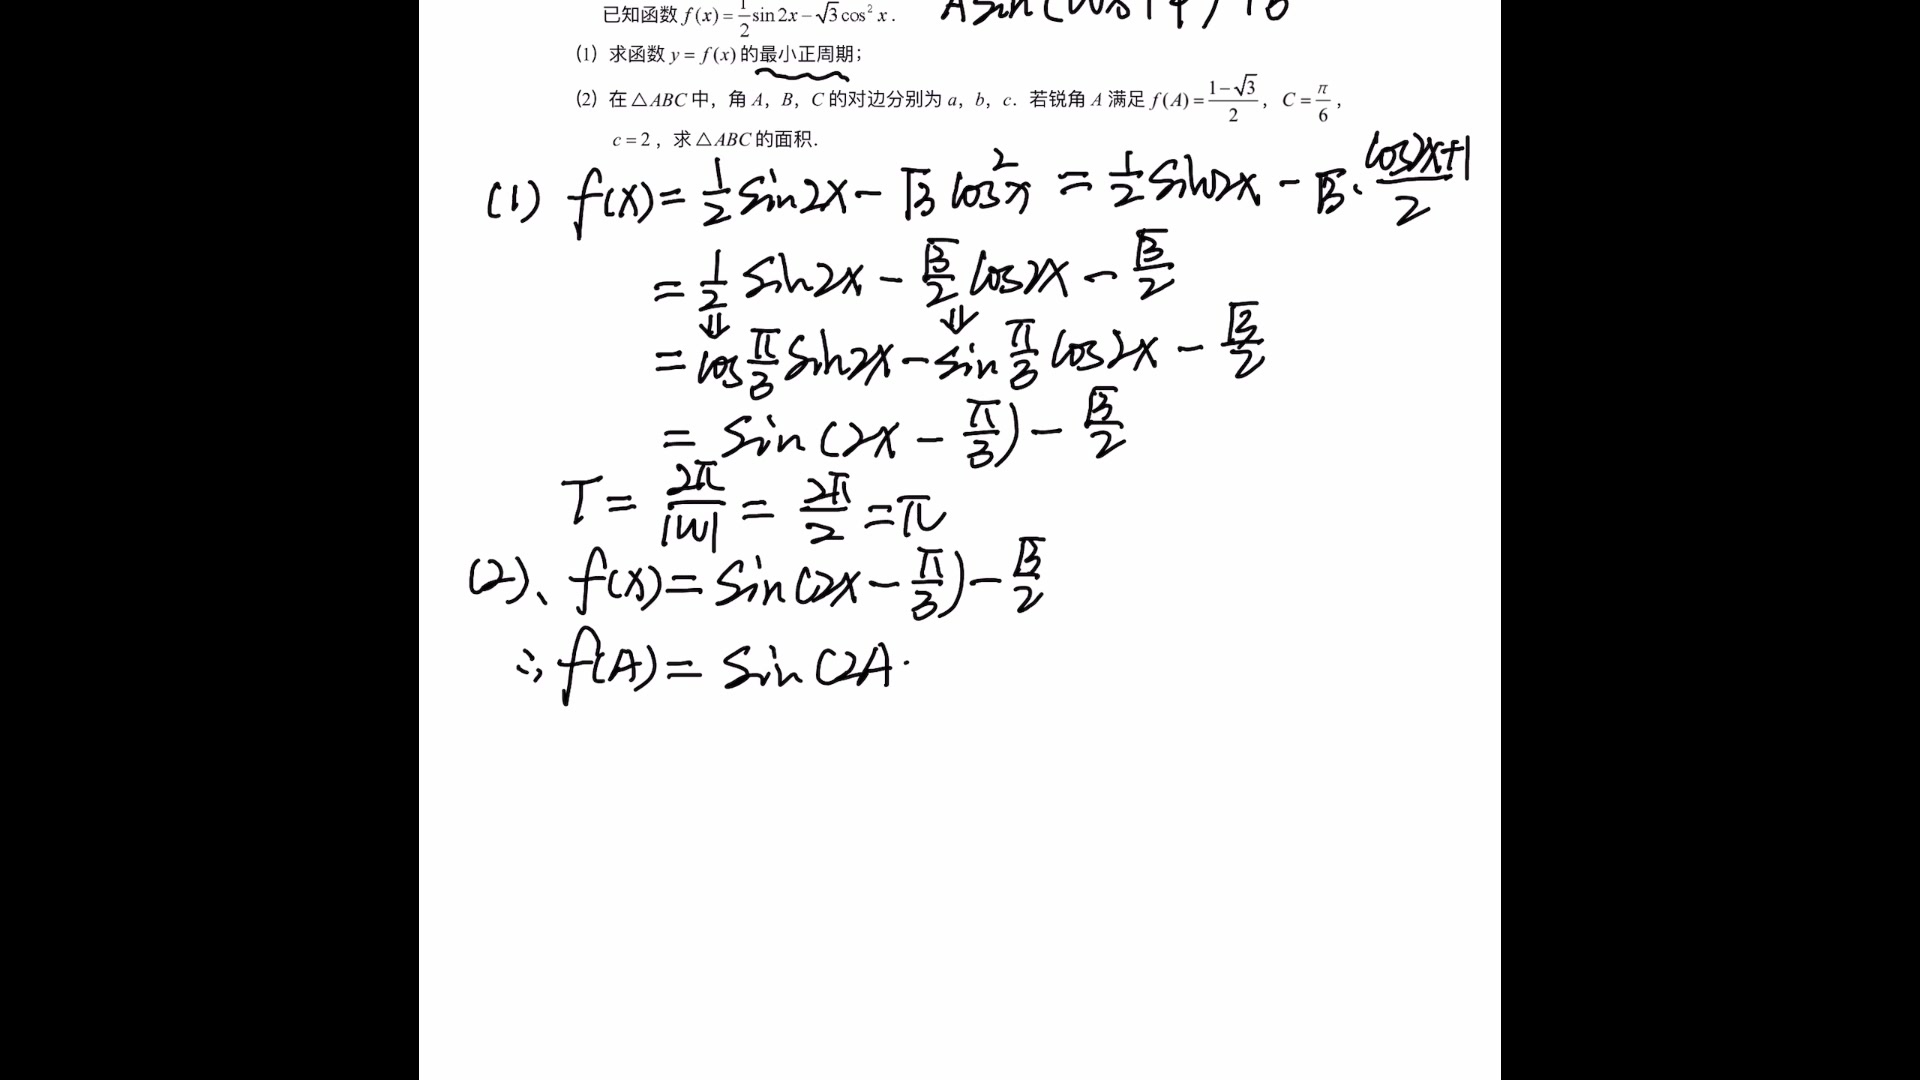 已知函数 f(x)=1/2 sin2x-√3cos²x. Asin(ωx+φ)+B
(1) 求函数 y=f(x)的最小正周期;
(2) 在△ABC中, 角A, B, C的对边分别为a, b, c. 若锐角A满足f(A)=(1-√3)/2, C=π/6,
c=2, 求△ABC的面积.
(1) f(x)=1/2 sin2x-√3cos²x=1/2 sin2x-√3·(cos2x+1)/2
=1/2 sin2x-√3/2 cos2x-√3/2
⇓ ⇓
=cosπ/3 sin2x-sinπ/3 cos2x-√3/2
=sin(2x-π/3)-√3/2
T=2π/|W|=2π/2=π
(2)、f(x)=sin(2x-π/3)-√3/2
∴f(A)=sin(2A·